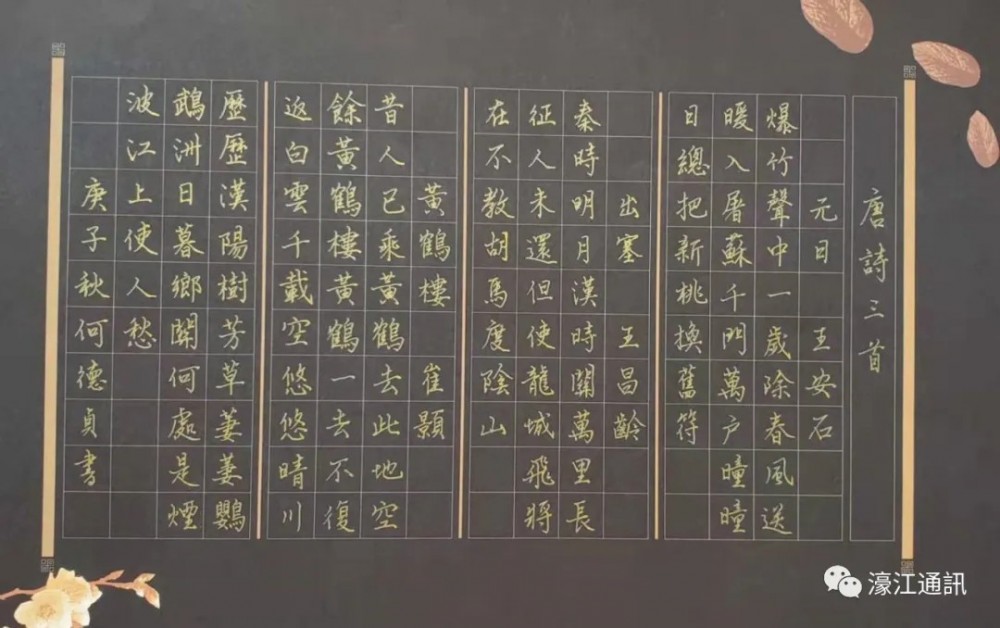 唐詩三首
元日 王安石
爆竹聲中一歲除春風送
暖入屠蘇千門萬户曈曈
日總把新桃換舊符
出塞 王昌齡
秦時明月漢時關萬里長
征人未還但使龍城飛將
在不教胡馬度陰山
黃鶴樓 崔顥
昔人已乘黃鶴去此地空
餘黃鶴樓黃鶴一去不復
返白雲千載空悠悠晴川
歷歷漢陽樹芳草萋萋鸚
鵡洲日暮鄉關何處是煙
波江上使人愁
庚子秋何德貞書
濠江通訊